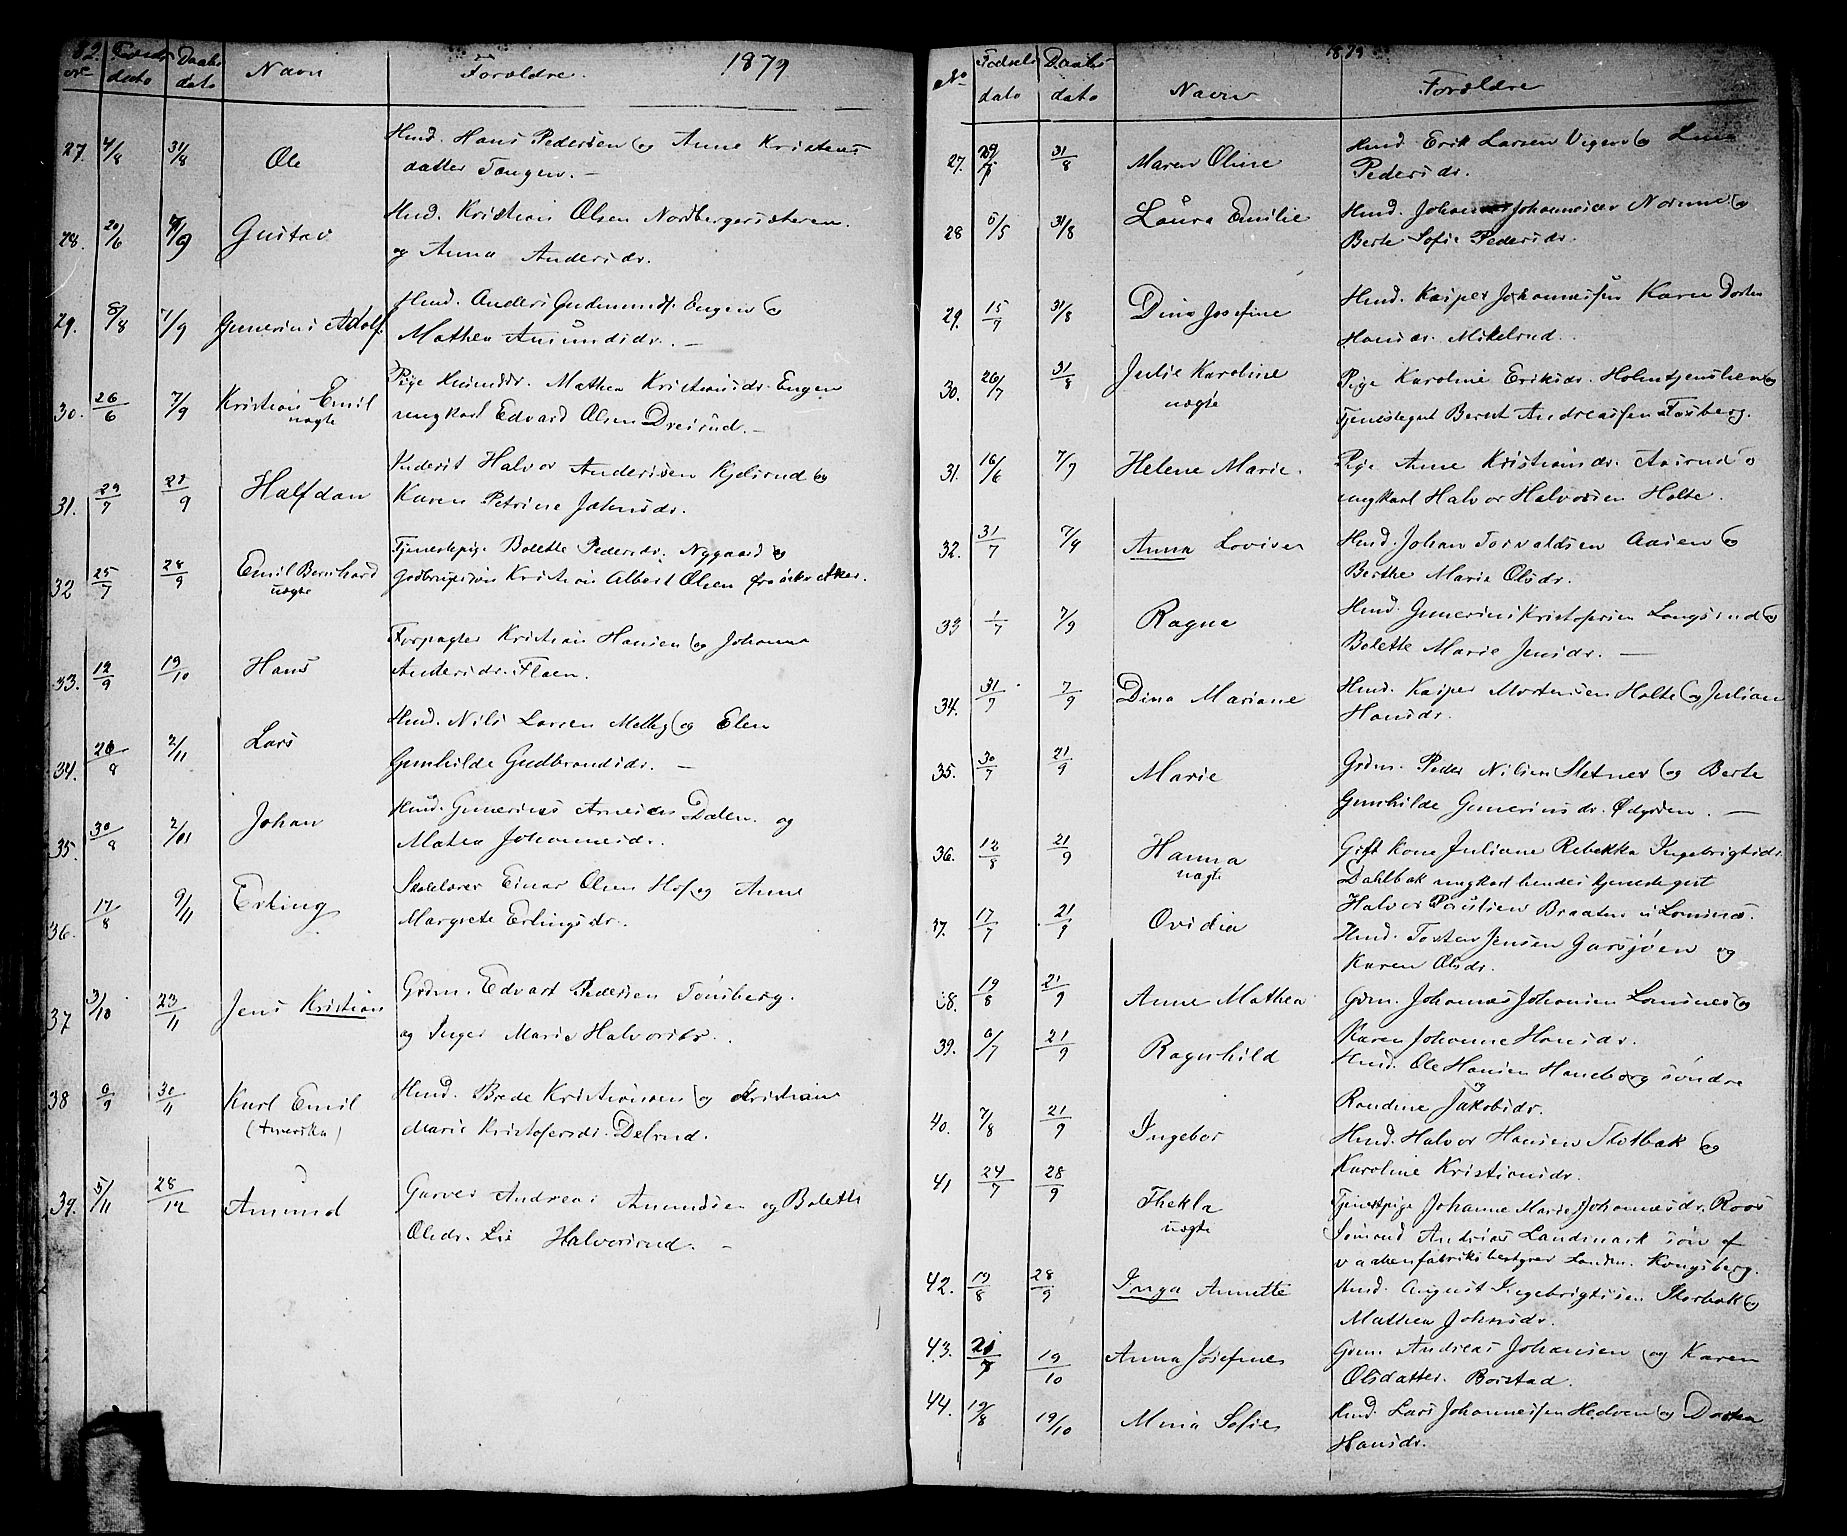 82.
No Fødsels dato Daabs dato Navn Forældre. 1879
27. 4/8 31/8 Ole Hmd. Hans Pedersen og Anne Kristens
datter Tangen. —
28. 20/6 7/9 Gustav Hmd. Kristian Olsen Nordbergersæteren.
og Anna Andersdr.
29. 8/8 7/9 Gunerius Adolf Hmd. Anders Gudmunds. Engen og
Mathea Amundsdr. —
30. 26/6 7/9 Kristian Emil Pige Mathea Kristiansdr. Engen
uægte ungkarl Edvard Olsen Dreisrud. —
31. 29/7 9 Halfdan Halvor Andersen Kjelsrud og
Karen Petrine Johnsdr.
32 25/7 28/9 Emil Bernhard Tjenestepige Bolette Pedersdr. Nygaard og
uægte Kristian Albert Olsen Aker.
33. 12/9 19/10 Hans Forpagter Kristian Hansen og Johanne
Andersdr. Floen.
34. 20/8 2/11 Lars Hmd. Nils Larsen og Elen
Gunhilde Gudbrandsdr. —
35. 30/8 2/11 Johan Hmd. Gunerius Arnesen Dalen. og
Matea Johannesdr.
36. 17/8 9/11 Erling Skolelærer Einar Olsen Hof og Anne
Margrete Erlingsdr.
37 3/10 23/11 Jens Kristian Grdm. Edvart Pedersen Tonsberg.
og Inger Marie Halvorsdr.
38 9/9 30/11 Karl Emil Hmd. Brede Kristiansen og Kristiane
(Amerika) Marie Kristofersdr. Delrud.
39. 5/11 28/12 Amund Garver Andreas Amundsen og Bolette
Olsdr. Lie Halvorsrud. —
1879
No Fødsels dato Daabs dato Navn Forældre
27. 31/8 Maren Oline Hmd. Erik Larsen Vigen og Lina
Pedersdr.
28 5/5 31/8 Laura Emilie Hmd. Johannes Johannesen Nordme og
Berte Sofie Pedersdr.
29. 15 31/8 Dina Josefine Hmd. Kasper Johannessen Karen Dortea
Hansdr. Mikelrud.
30. 26/7 31/8 Julie Karoline Pige Karoline Eriksdr. Holmtjenslien og
uægte Tjenestegut Bernt Andreassen Fosberg.
31. 16/6 7/9 Helene Marie. Pige Anne Kristiansdr. Aasrud o
ungkarl Halvor Halvorsen Holte.
32. 31/7 7/9 Anna Lovise Hmd. Johan Torvaldsen Aasen og
Berthe Marie Olsdr.
33 1/7 7/9 Ragna Hmd. Gunerius Kristofersen Langsrud og
Bolette Marie Jensdr. —
34. 31/7 7/9 Dina Mariane Hmd. Kasper Mortensen Holte og Julian
Hansdr.
35. 30/7 21/9 Marie Grdm. Peder Nilsen Sletner og Berte
Gunhilde Guneriusdr. —
36. 12/8 21/9 Hanna Gift kone Juliane Rebekka Ingebrigtsdr.
uægte Dahlbak ungkarl hendes tjenestegut
Halvor Paulsen Braaten
37. 17/7 21/9 Ovidia Hmd. Tosten Jensen Garsjøen og
Karen Olsdr.
38. 19/8 21/9 Anne Mathea Grdm. Johannes Johansen Lomsnes og
Karen Johanne Hansdr.
39. 6/7 21/9 Ragnhild Hmd. Ole Hansen Haneborg søndre
og
Randine Jakobsdr.
40. 7/8 21/9 Ingebor Hmd. Halvor Hansen Slotbak og
Karoline Kristiansdr.
41 24/7 28/9 Thekla Tjenestpige Johanne Marie Johannesdr. Roos
uægte Andreas Landmark søn af
vaabenfabriksbestyrer Landm. Kongsberg.
42. 19/8 28/9 Inga Annette Hmd. August Ingebrigtsen Storbak og
Mathea Johnsdr.
43. 21/7 19/10 Anna Josefine Grdm. Andreas Johansen og Karen
Olsdatter. Borstad.
44. 19/8 19/10 Mina Sofie Hmd. Lars Johannessen Hedven og Dortea
Hansdr.